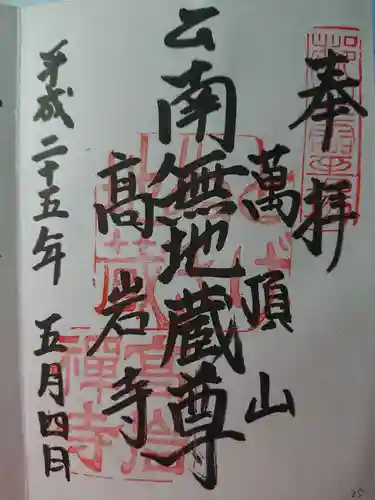 奉拝
萬頂山
南無地蔵尊
高岩寺
平成二十五年 五月四日
25